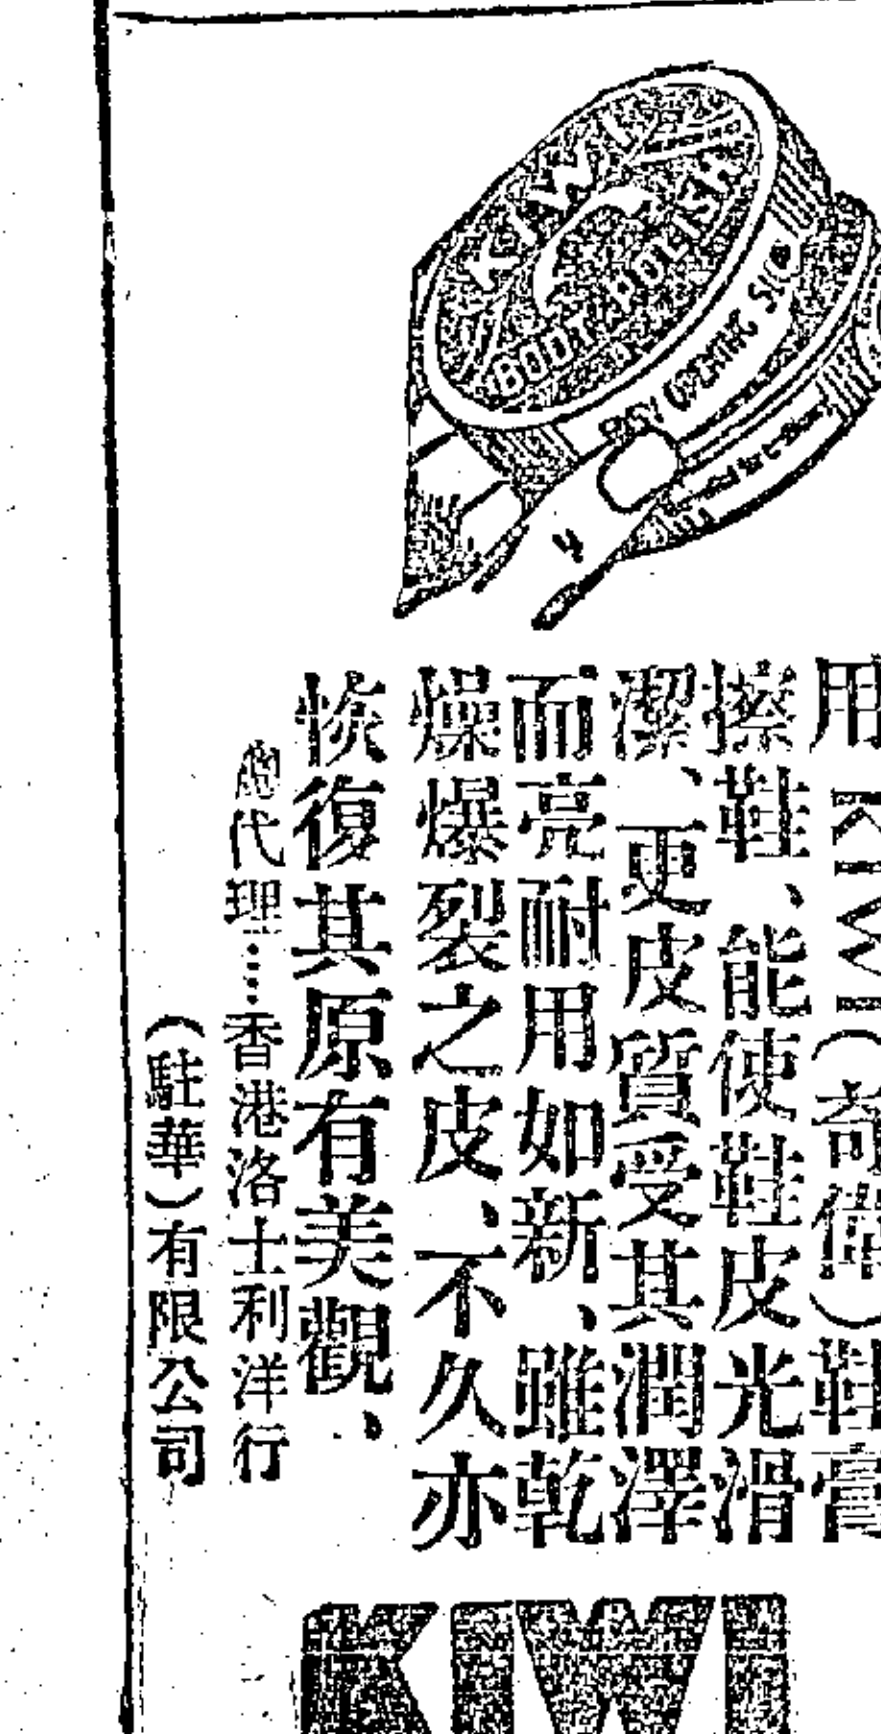 KIWI
BOOT POLISH
用KIWI(奇偉)鞋膏
擦鞋、能使鞋皮光滑
潔、更皮質受其潤澤
而亮耐用如新、雖乾
燥爆裂之皮、不久亦
恢復其原有美觀、
總代理…香港洛士利洋行
(駐華)有限公司
KIWI